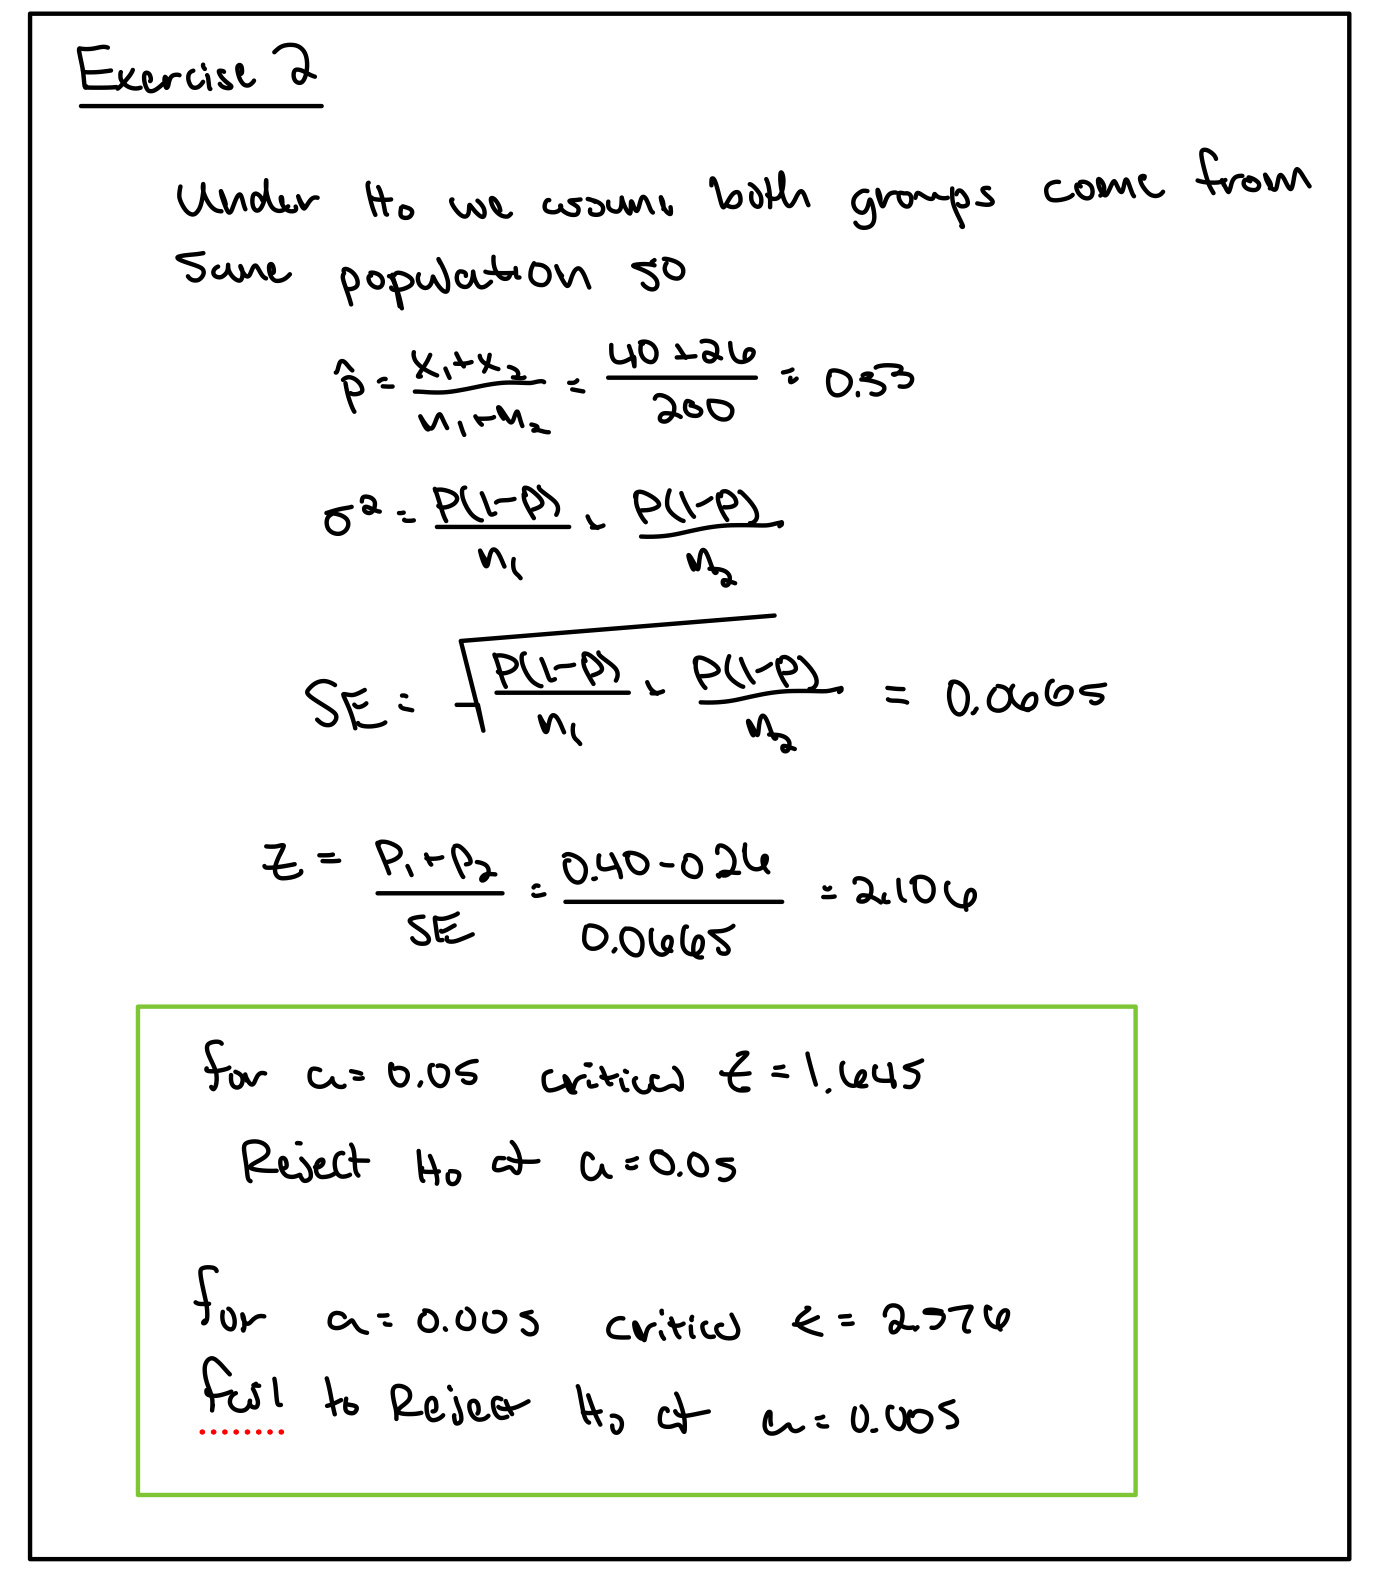 Exercise 2
Under H₀ we assume both groups come from
Same population so
p̂ = (x₁+x₂)/(n₁+n₂) = (40+26)/200 = 0.33
σ² = P(1-P)/n₁ + P(1-P)/n₂
SE = √(P(1-P)/n₁ + P(1-P)/n₂) = 0.0665
Z = (P₁-P₂)/SE = (0.40-0.26)/0.0665 = 2.106
for a=0.05 critical Z = 1.645
Reject H₀ at a=0.05
for a=0.005 critical Z = 2.576
fail to Reject H₀ at a=0.005